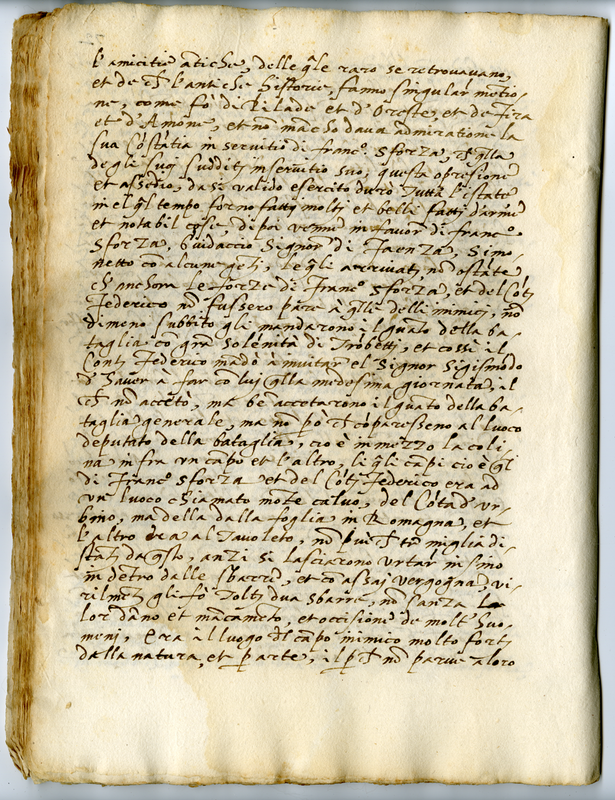 l'amicitie ãtiche, delle q̃le raro se retrovavano,
et de ch̃ l'antiche historie, fanno singular mẽtio
ne, come fò di Pilade et d'Oreste, et de
et d'Amone, et nõ mãcho dava admiratione la
sua cõstãtia in servitio di Franc.º Sforza, q̃lla
degli suoj sudditj in servitio suo, questa opresione
et assedio, da sì valido esercito durò tutta l'estate
in el q̃l tempo forno fattj molti et belli fattj d'arme
et notabil cose, di poi venne in favor di Franc.º
Sforza, Guidaccio Signor di Faenza, Simo
netto con alcune gẽti, le q̃li arrivatj, nõ ostãte
ch̃ anchora le forze di Franc.º Sforza, et del Cõtj
Federico nõ fussero pare à q̃lle delli inimicj, nõ
dimeno subbito gli mandarono il guãto della ba
taglia cõ grã solenità di Trõbetti, et cossì il
Contj Federico mãdò à invitar el Signor Sigismõdo
d' à far con lui q̃lla medesima giornata, il
ch̃ nõ accetò, ma bẽ accetarono il guãto della ba
taglia generale, ma nõ pò ch̃ cõparesseno al luoco
deputato della bataglia, cio è in mezzo la coli
na infra un cãpo et l'altro, li q̃li cãpi cio è q̃l
di Franc.º Sforza et del Cõtj Federico era ad
un luoco chiamato mõte calvo, del Cõtad'ur
bino, ma della dalla foglia in Romagna, et
l'altro era al Tavoleto, nõ più ch̃ tre miglia di
stãtj da q̃sto, anzi si lasciarono urtar insino
in dẽtro dalle sbarre, et cõ assaj vergogna, vi
rilmẽtj gli fò tolti dua sbarre, nõ sanza
lor dãno et mãcamẽto, et occisione de molti huo
menj, Era il luogo del cãpo inimico molto fortj
dalla natura, et p arte, il p ch̃ nõ parve a loro